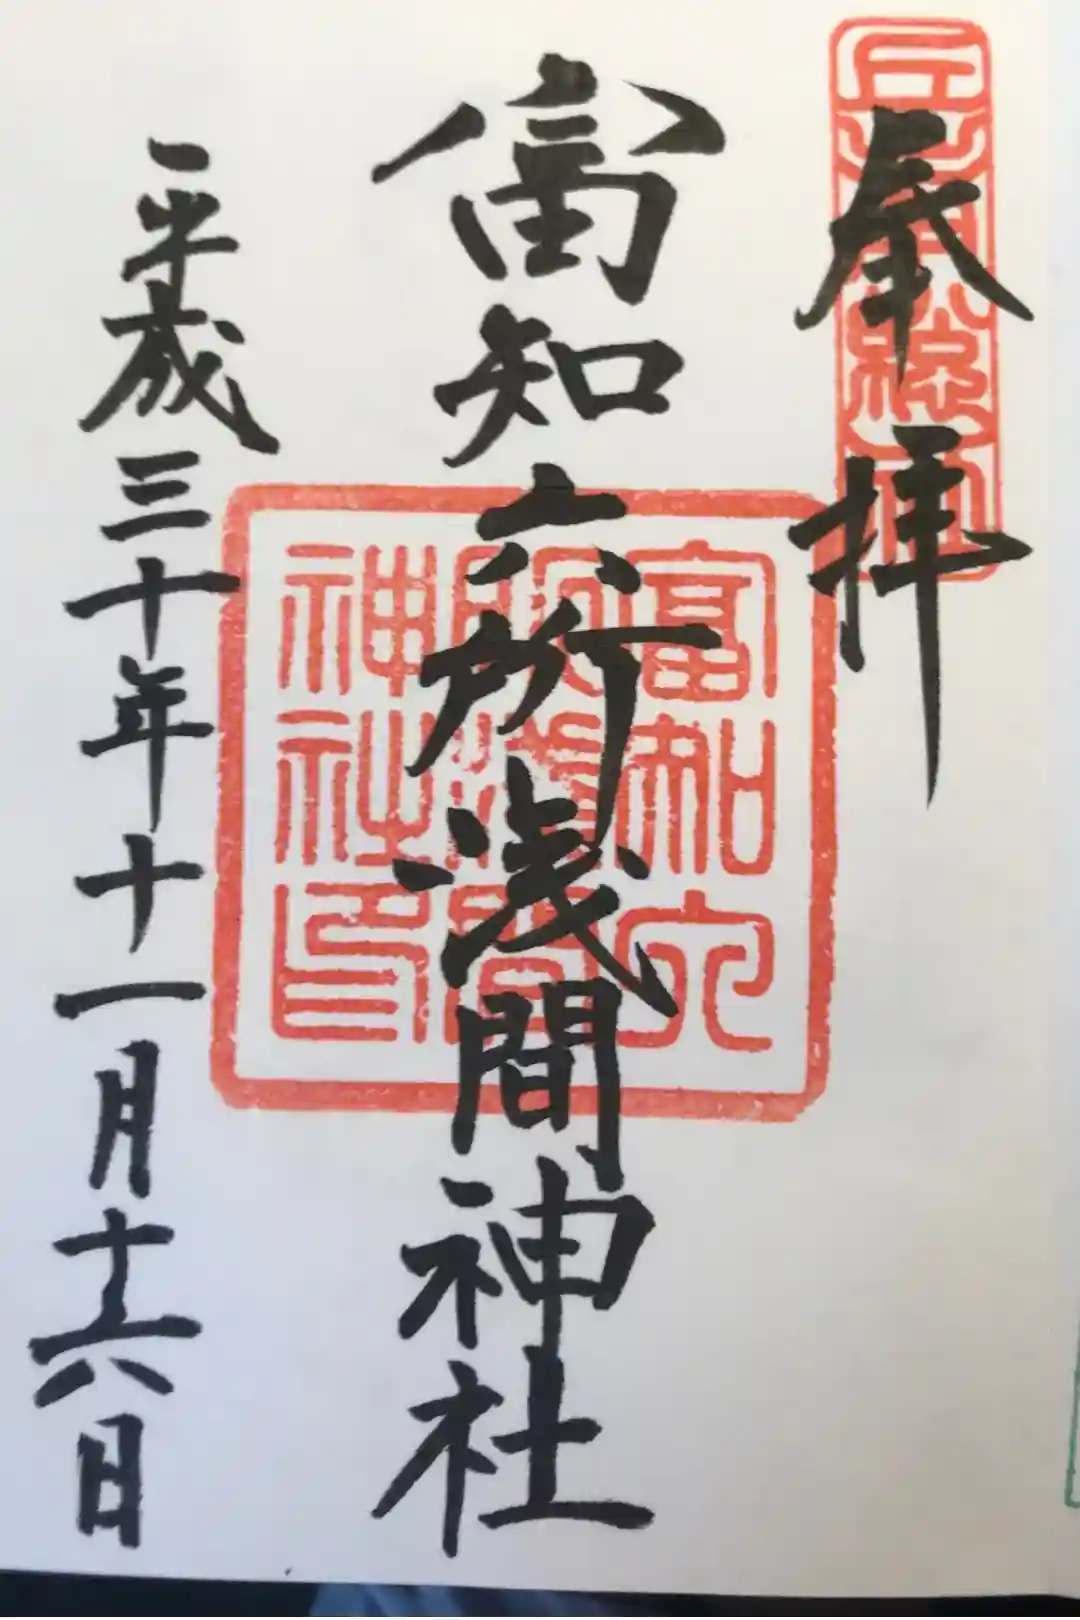 奉拝
富知六所浅間神社
平成三十年十一月十六日
富知六
所淺間
神社印